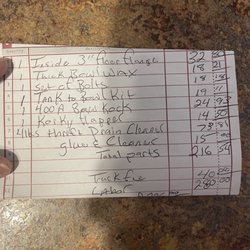 1 Inside 3" floor flange 32
1 Thick Bowl Wax 18 21
1 Set of Bolts 18 18
1 Tank to Bowl Kit 19
1 400A 24 93
1 Korky flapper 14 50
Drain Cleaner 23
glue & Cleaner 15
Total parts 216 54
Truck fee 40
Labor 280 00